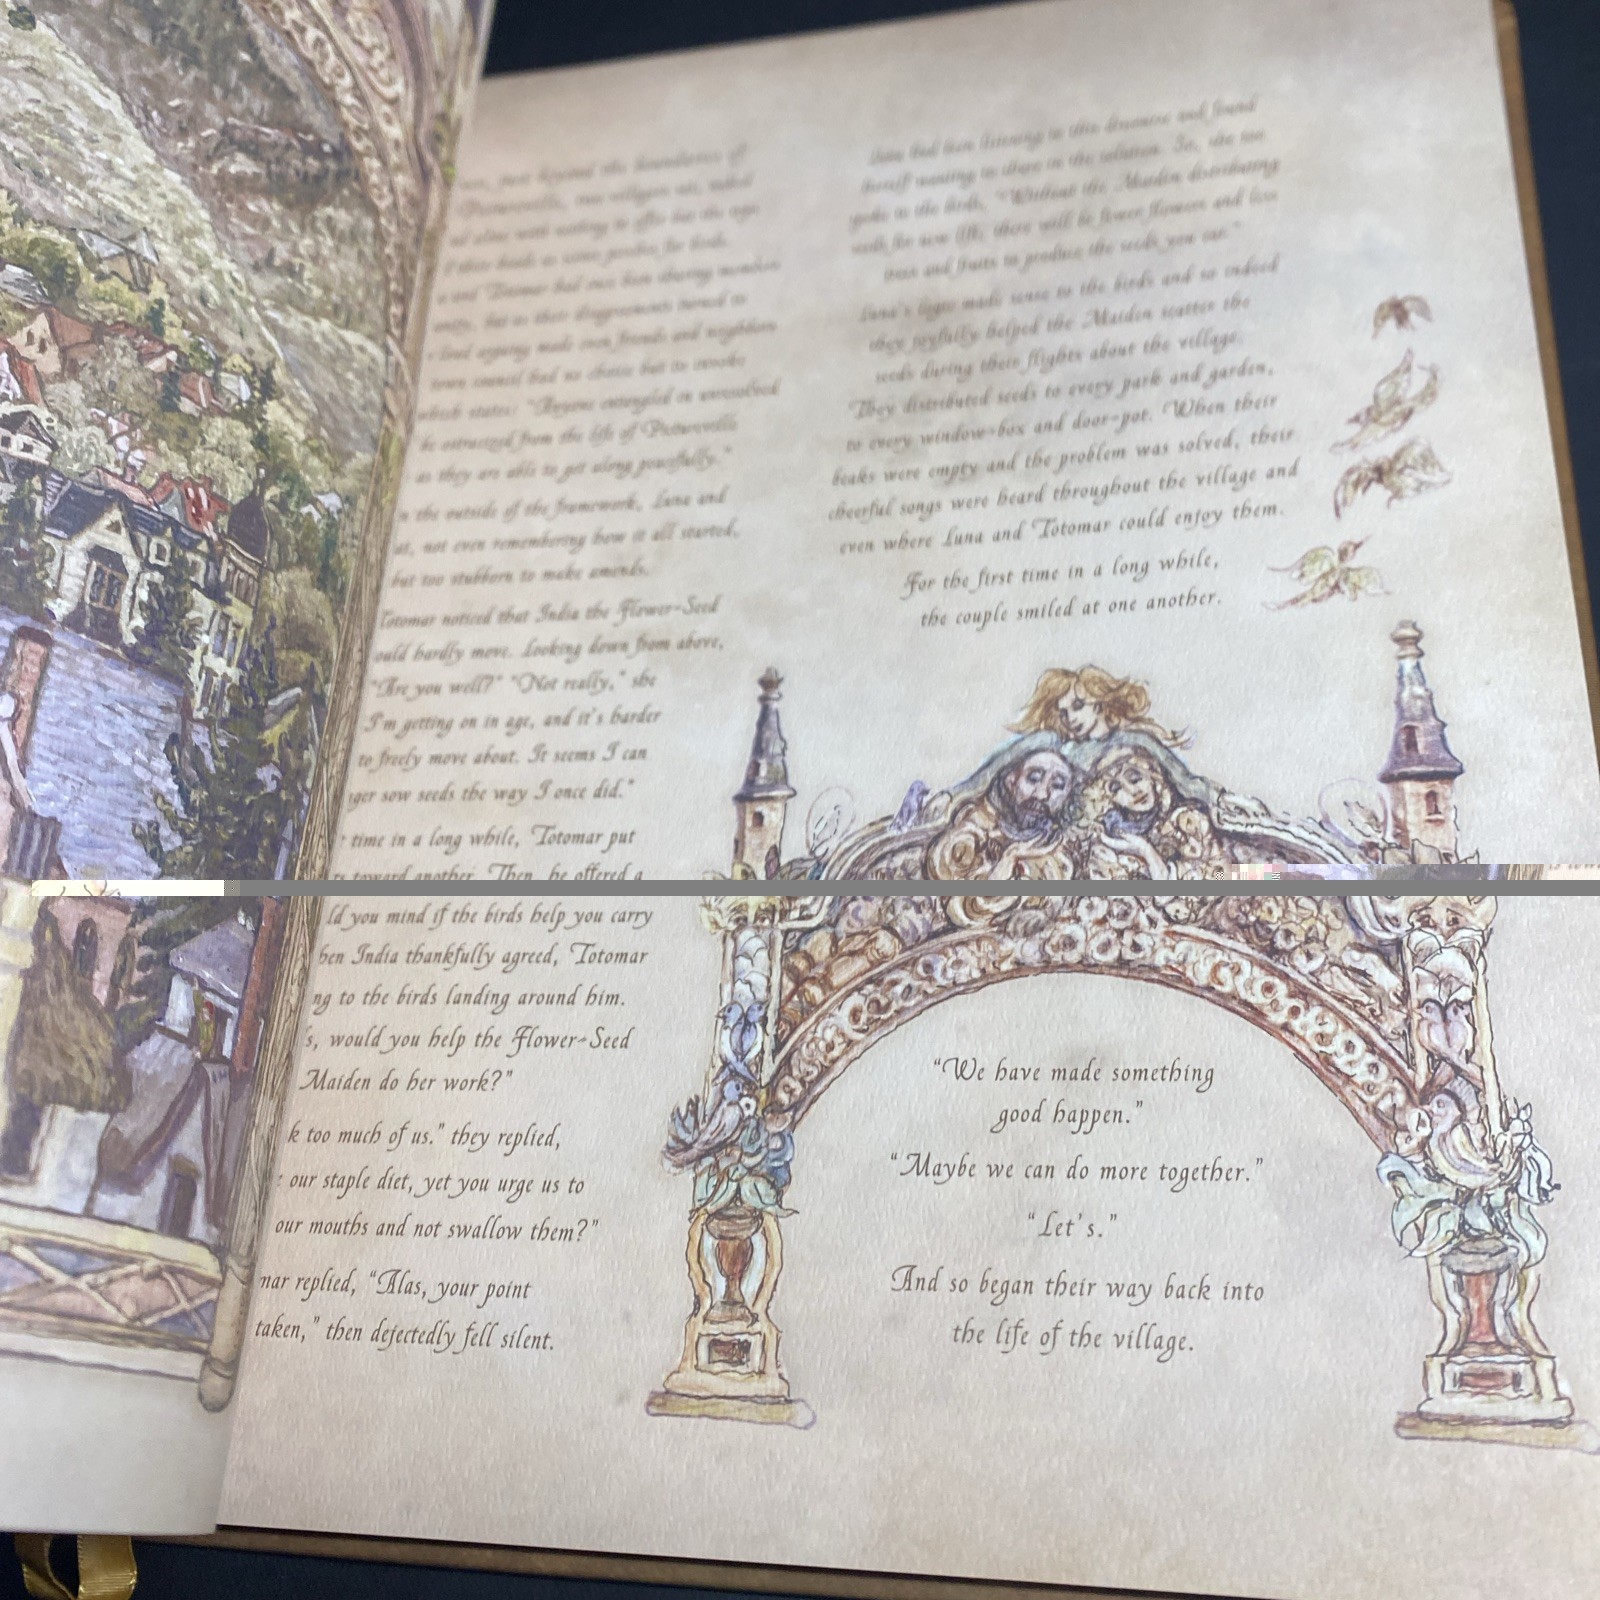 just beyond the boundaries of
Pictureville, two villagers sat, naked
and alone with nothing to offer but the
if their heads as some perches for birds.
a and Totomar had once been sharing members
but as their disagreements turned to
loud arguing made even friends and neighbors
town council had no choice but to invoke
which states: "Anyone entangled in unresolved
be ostracized from the life of Pictureville
as they are able to get along peacefully."
n the outside of the framework, Luna and
at, not even remembering how it all started,
but too stubborn to make amends.
Totomar noticed that India the Flower-Seed
ould hardly move. Looking down from above,
"Are you well?" "Not really," she
I'm getting on in age, and it's harder
to freely move about. It seems I can
ger sow seeds the way I once did."
time in a long while, Totomar put
ts toward another. Then, he offered a
ld you mind if the birds help you carry
hen India thankfully agreed, Totomar
ng to the birds landing around him.
s, would you help the Flower-Seed
Maiden do her work?"
k too much of us." they replied,
our staple diet, yet you urge us to
our mouths and not swallow them?"
mar replied, "Alas, your point
taken," then dejectedly fell silent.
Luna had been listening to this discourse and found
herself wanting to share in the solution. So, she too
spoke to the birds, "Without the Maiden distributing
seeds for new life, there will be fewer flowers and less
trees and fruits to produce the seeds you eat."
Luna's logic made sense to the birds and so indeed
they joyfully helped the Maiden scatter the
seeds during their flights about the village.
They distributed seeds to every park and garden,
to every window-box and door-pot. When their
beaks were empty and the problem was solved, their
cheerful songs were heard throughout the village and
even where Luna and Totomar could enjoy them.
For the first time in a long while,
the couple smiled at one another.
"We have made something
good happen."
"Maybe we can do more together."
"Let's."
And so began their way back into
the life of the village.